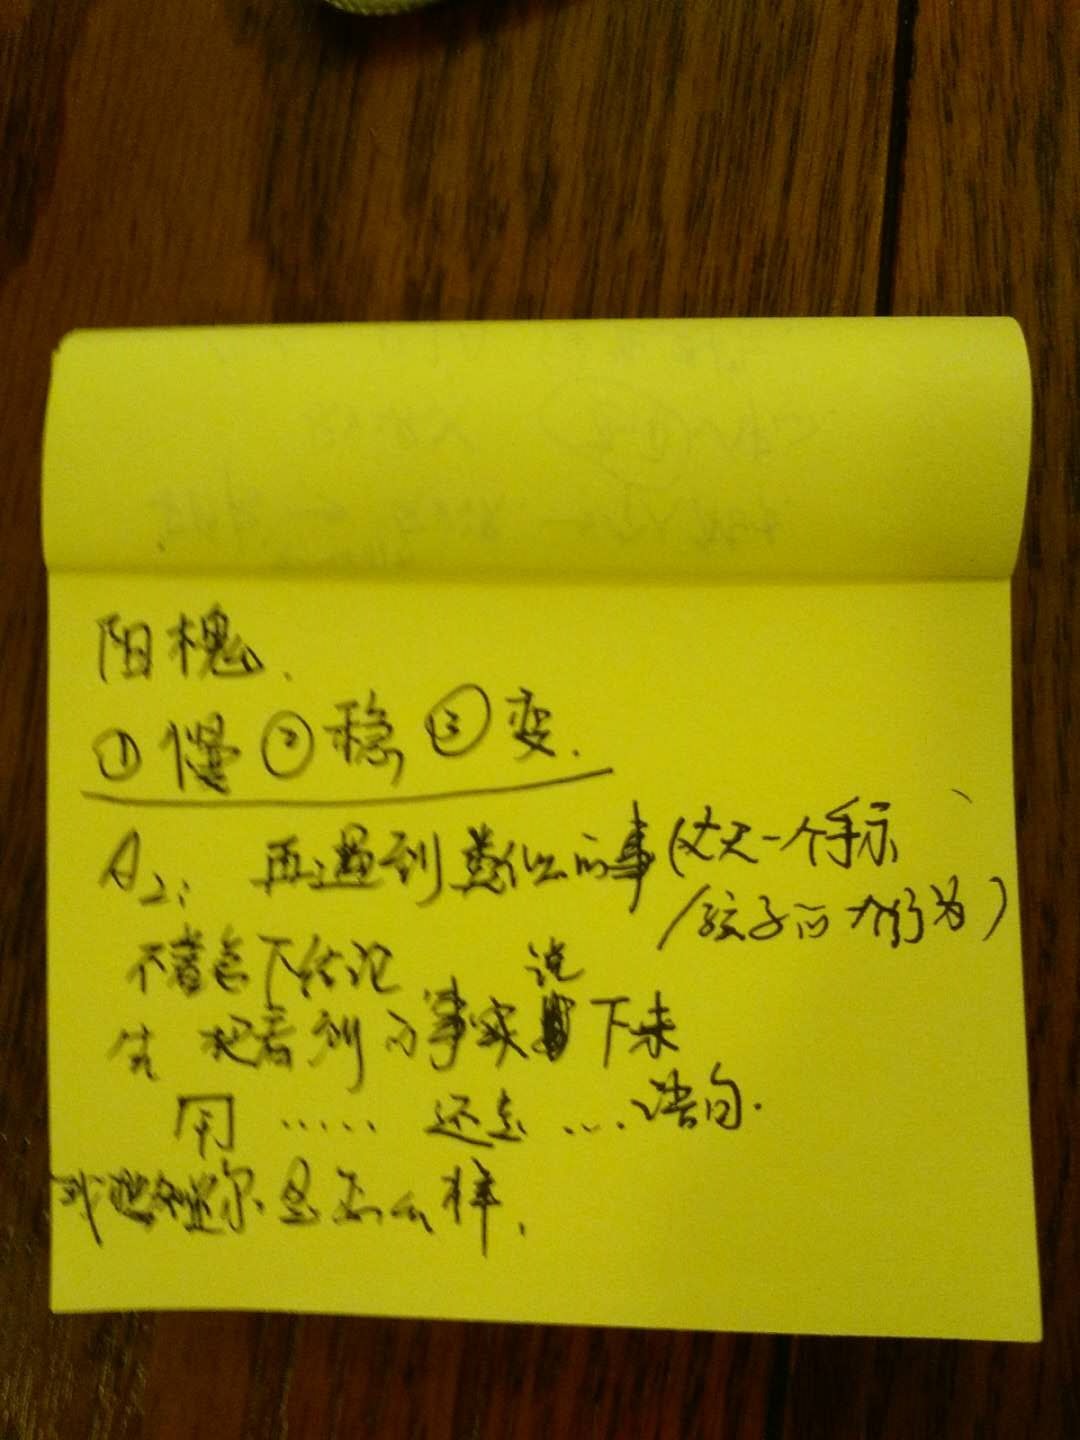 阳槐.
① 慢 ② 稳 ③ 变.
A2: 再遇到类似的事(丈夫一个手示
/孩子的一个行为)
不着急下结论
先 把看到的事实说下来
用 ...... 还是 .... 语句.
我 你 是怎么样.